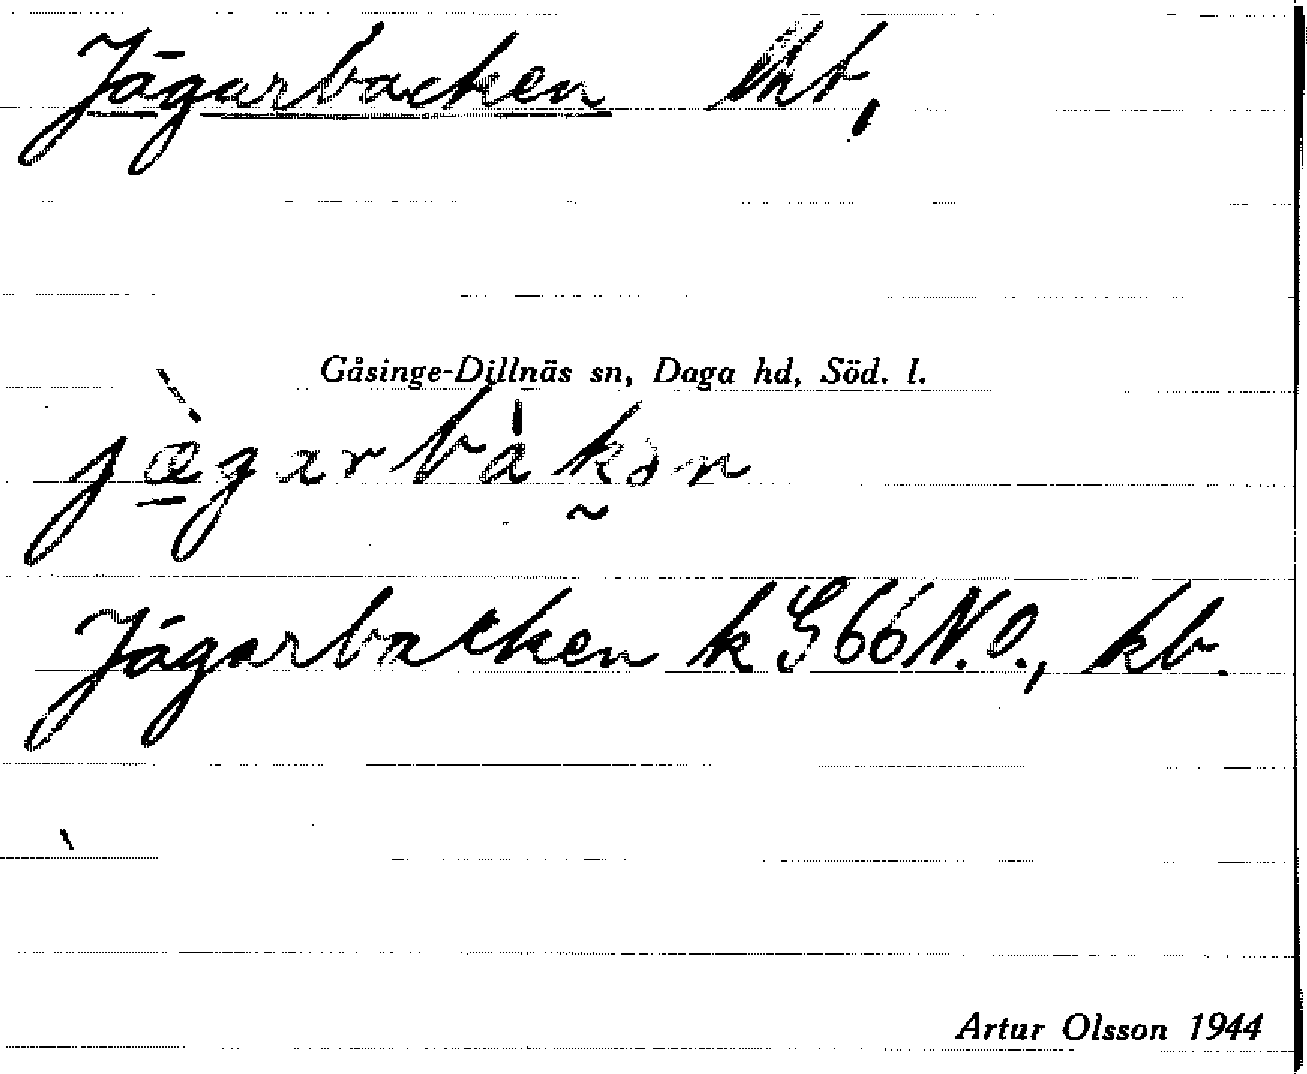 Jägarbacken lht,
Gåsinge-Dillnäs sn, Daga hd, Söd. l.
jæ̀garbàkən
Jägarbacken k G 66 N.O., kb.
Artur Olsson 1944